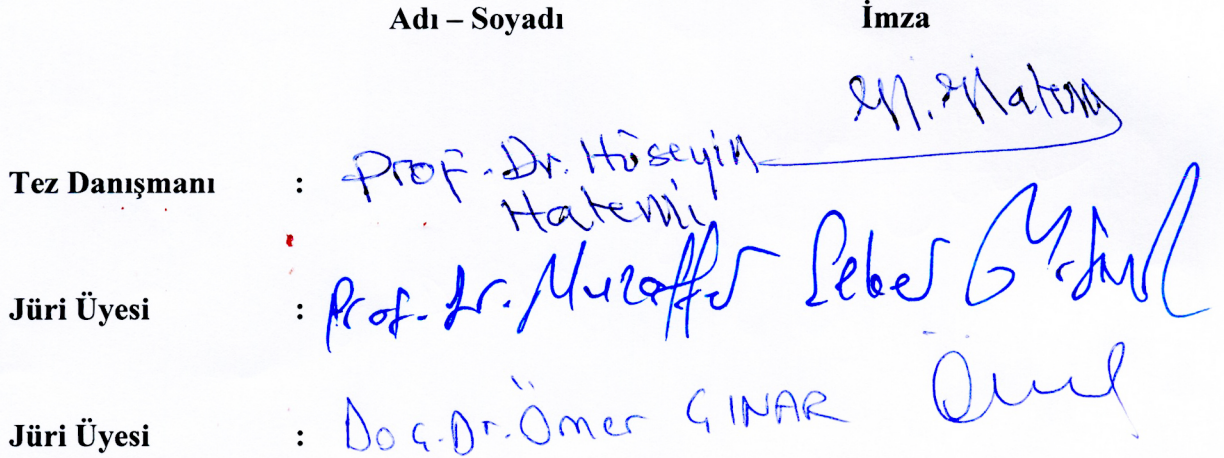 Adı – Soyadı İmza
Tez Danışmanı : Prof. Dr. Hüseyin
Hatemi
Jüri Üyesi : Prof. Dr. Muzaffer Şeker
Jüri Üyesi : Doç. Dr. Ömer ÇINAR